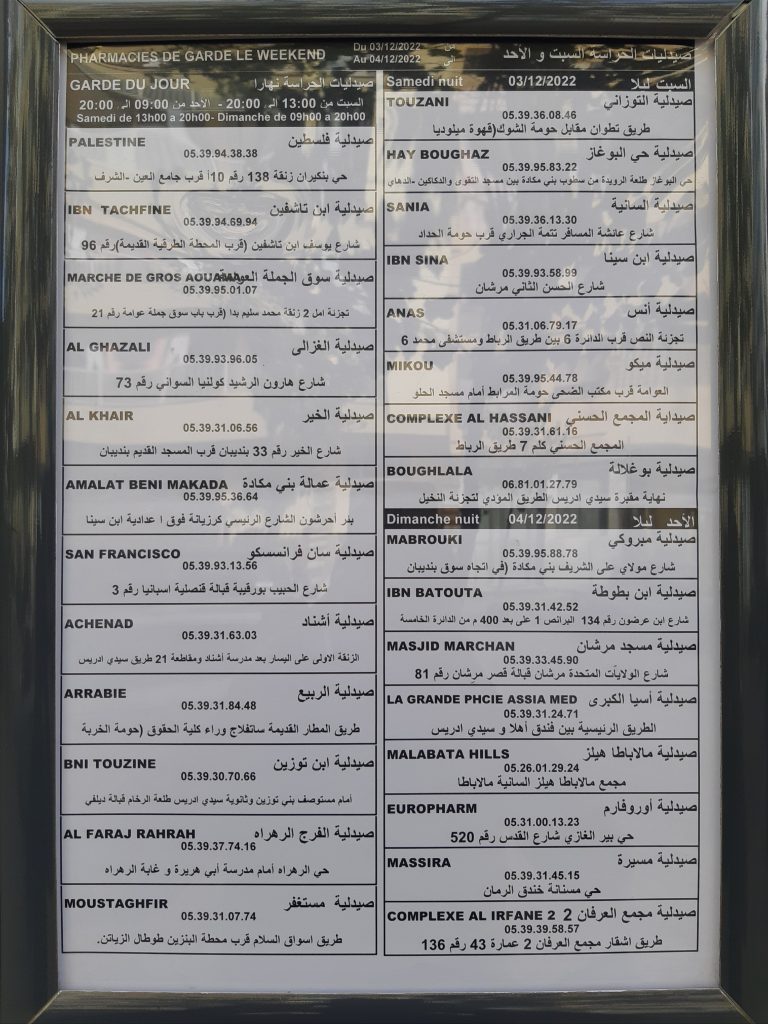 PHARMACIES DE GARDE LE WEEKEND Du 03/12/2022 من صيدليات الحراسة السبت و الأحد
Au 04/12/2022 إلى
GARDE DU JOUR صيدليات الحراسة نهارا
السبت من 13:00 الى 20:00 - الأحد من 09:00 الى 20:00
Samedi de 13h00 a 20h00- Dimanche de 09h00 a 20h00
PALESTINE صيدلية فلسطين
05.39.94.38.38
حي بنكيران زنقة 138 رقم 10أ قرب جامع العين -الشرف
IBN TACHFINE صيدلية ابن تاشفين
05.39.94.69.94
شارع يوسف ابن تاشفين (قرب المحطة الطرقية القديمة)رقم 96
MARCHE DE GROS AOUAMA صيدلية سوق الجملة العوامة
05.39.95.01.07
تجزئة امل 2 زنقة محمد سليم بدا (قرب باب سوق جملة عوامة رقم 21
AL GHAZALI صيدلية الغزالى
05.39.93.96.05
شارع هارون الرشيد كولنيا السواني رقم 73
AL KHAIR صيدلية الخير
05.39.31.06.56
شارع الخير رقم 33 بنديبان قرب المسجد القديم بنديبان
AMALAT BENI MAKADA صيدلية عمالة بني مكادة
05.39.95.36.64
بئر أحرشون الشارع الرئيسي كرزيانة فوق ا عدادية ابن سينا
SAN FRANCISCO صيدلية سان فرانسسكو
05.39.93.13.56
شارع الحبيب بورقيبة قبالة قنصلية اسبانيا رقم 3
ACHENAD صيدلية أشناد
05.39.31.63.03
الزنقة الاولى على اليسار بعد مدرسة أشناد ومقاطعة 21 طريق سيدي ادريس
ARRABIE صيدلية الربيع
05.39.31.84.48
طريق المطار القديمة ساتفلاج وراء كلية الحقوق (حومة الخربة
BNI TOUZINE صيدلية ابن توزين
05.39.30.70.66
أمام مستوصف بني توزين وثانوية سيدي ادريس طلعة الرخام قبالة ديلفي
AL FARAJ RAHRAH صيدلية الفرج الرهراه
05.39.37.74.16
حي الرهراه أمام مدرسة أبي هريرة و غابة الرهراه
MOUSTAGHFIR صيدلية مستغفر
05.39.31.07.74
طريق اسواق السلام قرب محطة البنزين طوطال الزياتن.
Samedi nuit 03/12/2022 السبت ليلا
TOUZANI صيدلية التوزاني
05.39.36.08.46
طريق تطوان مقابل حومة الشوك(قهوة ميلوديا
HAY BOUGHAZ صيدلية حي البوغاز
05.39.95.83.22
حي البوغاز طلعة الرويدة من سطوب بني مكادة بين مسجد التقوى والدكاكين -الدهاي
SANIA صيدلية السانية
05.39.36.13.30
شارع عائشة المسافر تتمة الجراري قرب حومة الحداد
IBN SINA صيدلية ابن سينا
05.39.93.58.99
شارع الحسن الثاني مرشان
ANAS صيدلية أنس
05.31.06.79.17
تجزئة النص قرب الدائرة 6 بين طريق الرباط ومستشفى محمد 6
MIKOU صيدلية ميكو
05.39.95.44.78
العوامة قرب مكتب الضحى حومة المرابط أمام مسجد الحلو
COMPLEXE AL HASSANI صيداية المجمع الحسني
05.39.31.61.16
المجمع الحسني كلم 7 طريق الرباط
BOUGHLALA صيدلية بوغلالة
06.81.01.27.79
نهاية مقبرة سيدي ادريس الطريق المؤدي لتجزئة النخيل
Dimanche nuit 04/12/2022 الأحد ليلا
MABROUKI صيدلية مبروكي
05.39.95.88.78
شارع مولاي على الشريف بني مكادة (في اتجاه سوق بنديبان
IBN BATOUTA صيدلية ابن بطوطة
05.39.31.42.52
شارع ابن عرضون رقم 134 البرانص 1 على بعد 400 م من الدائرة الخامسة
MASJID MARCHAN صيدلية مسجد مرشان
05.39.33.45.90
شارع الولايات المتحدة مرشان قبالة قصر مرشان رقم 81
LA GRANDE PHCIE ASSIA MED صيدلية أسيا الكبرى
05.39.31.24.71
الطريق الرئيسية بين فندق أهلا و سيدي ادريس
MALABATA HILLS صيدلية مالاباطا هيلز
05.26.01.29.24
مجمع مالاباطا هيلز السانية مالاباطا
EUROPHARM صيدلية أوروفارم
05.31.00.13.23
حي بير الغازي شارع القدس رقم 520
MASSIRA صيدلية مسيرة
05.39.31.45.15
حي مسنانة خندق الرمان
COMPLEXE AL IRFANE 2 صيدلية مجمع العرفان 2
05.39.39.58.57
طريق اشقار مجمع العرفان 2 عمارة 43 رقم 136